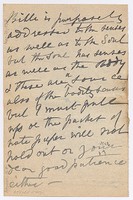 Bills is purposely
addressed to the senses
as well as to the Soul
but the Soul has senses
as well as the body
& these are a source
also of the bodily senses
but I must pull
up or the packet of
note paper will not
hold out or your
dear good patience
either